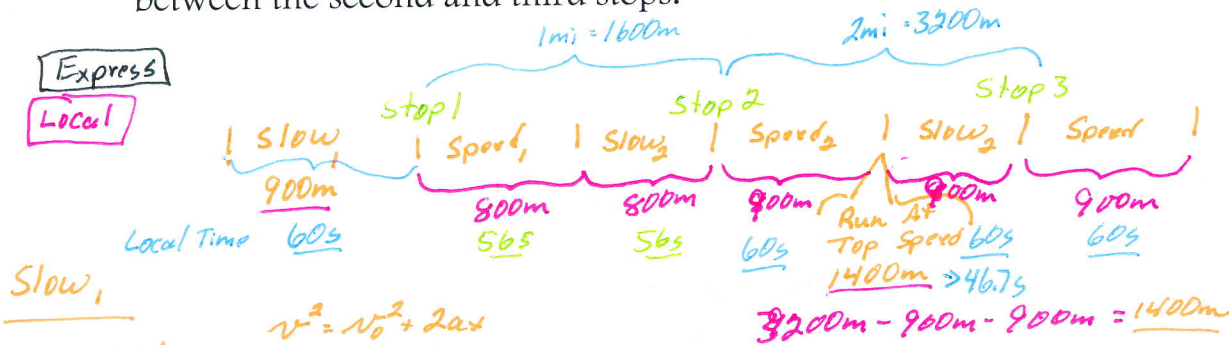 between the second and third stops.
1mi = 1600m 2mi = 3200m
Express
Local
Stop 1 Stop 2 Stop 3
| Slow1 | Speed1 | Slow2 | Speed2 | Slow2 | Speed |
900m 800m 800m 900m Run At 900m 900m
Local Time 60s 56s 56s 60s Top Speed 60s 60s
1400m → 46.7s
Slow1
v² = v₀² + 2ax
3200m - 900m - 900m = 1400m